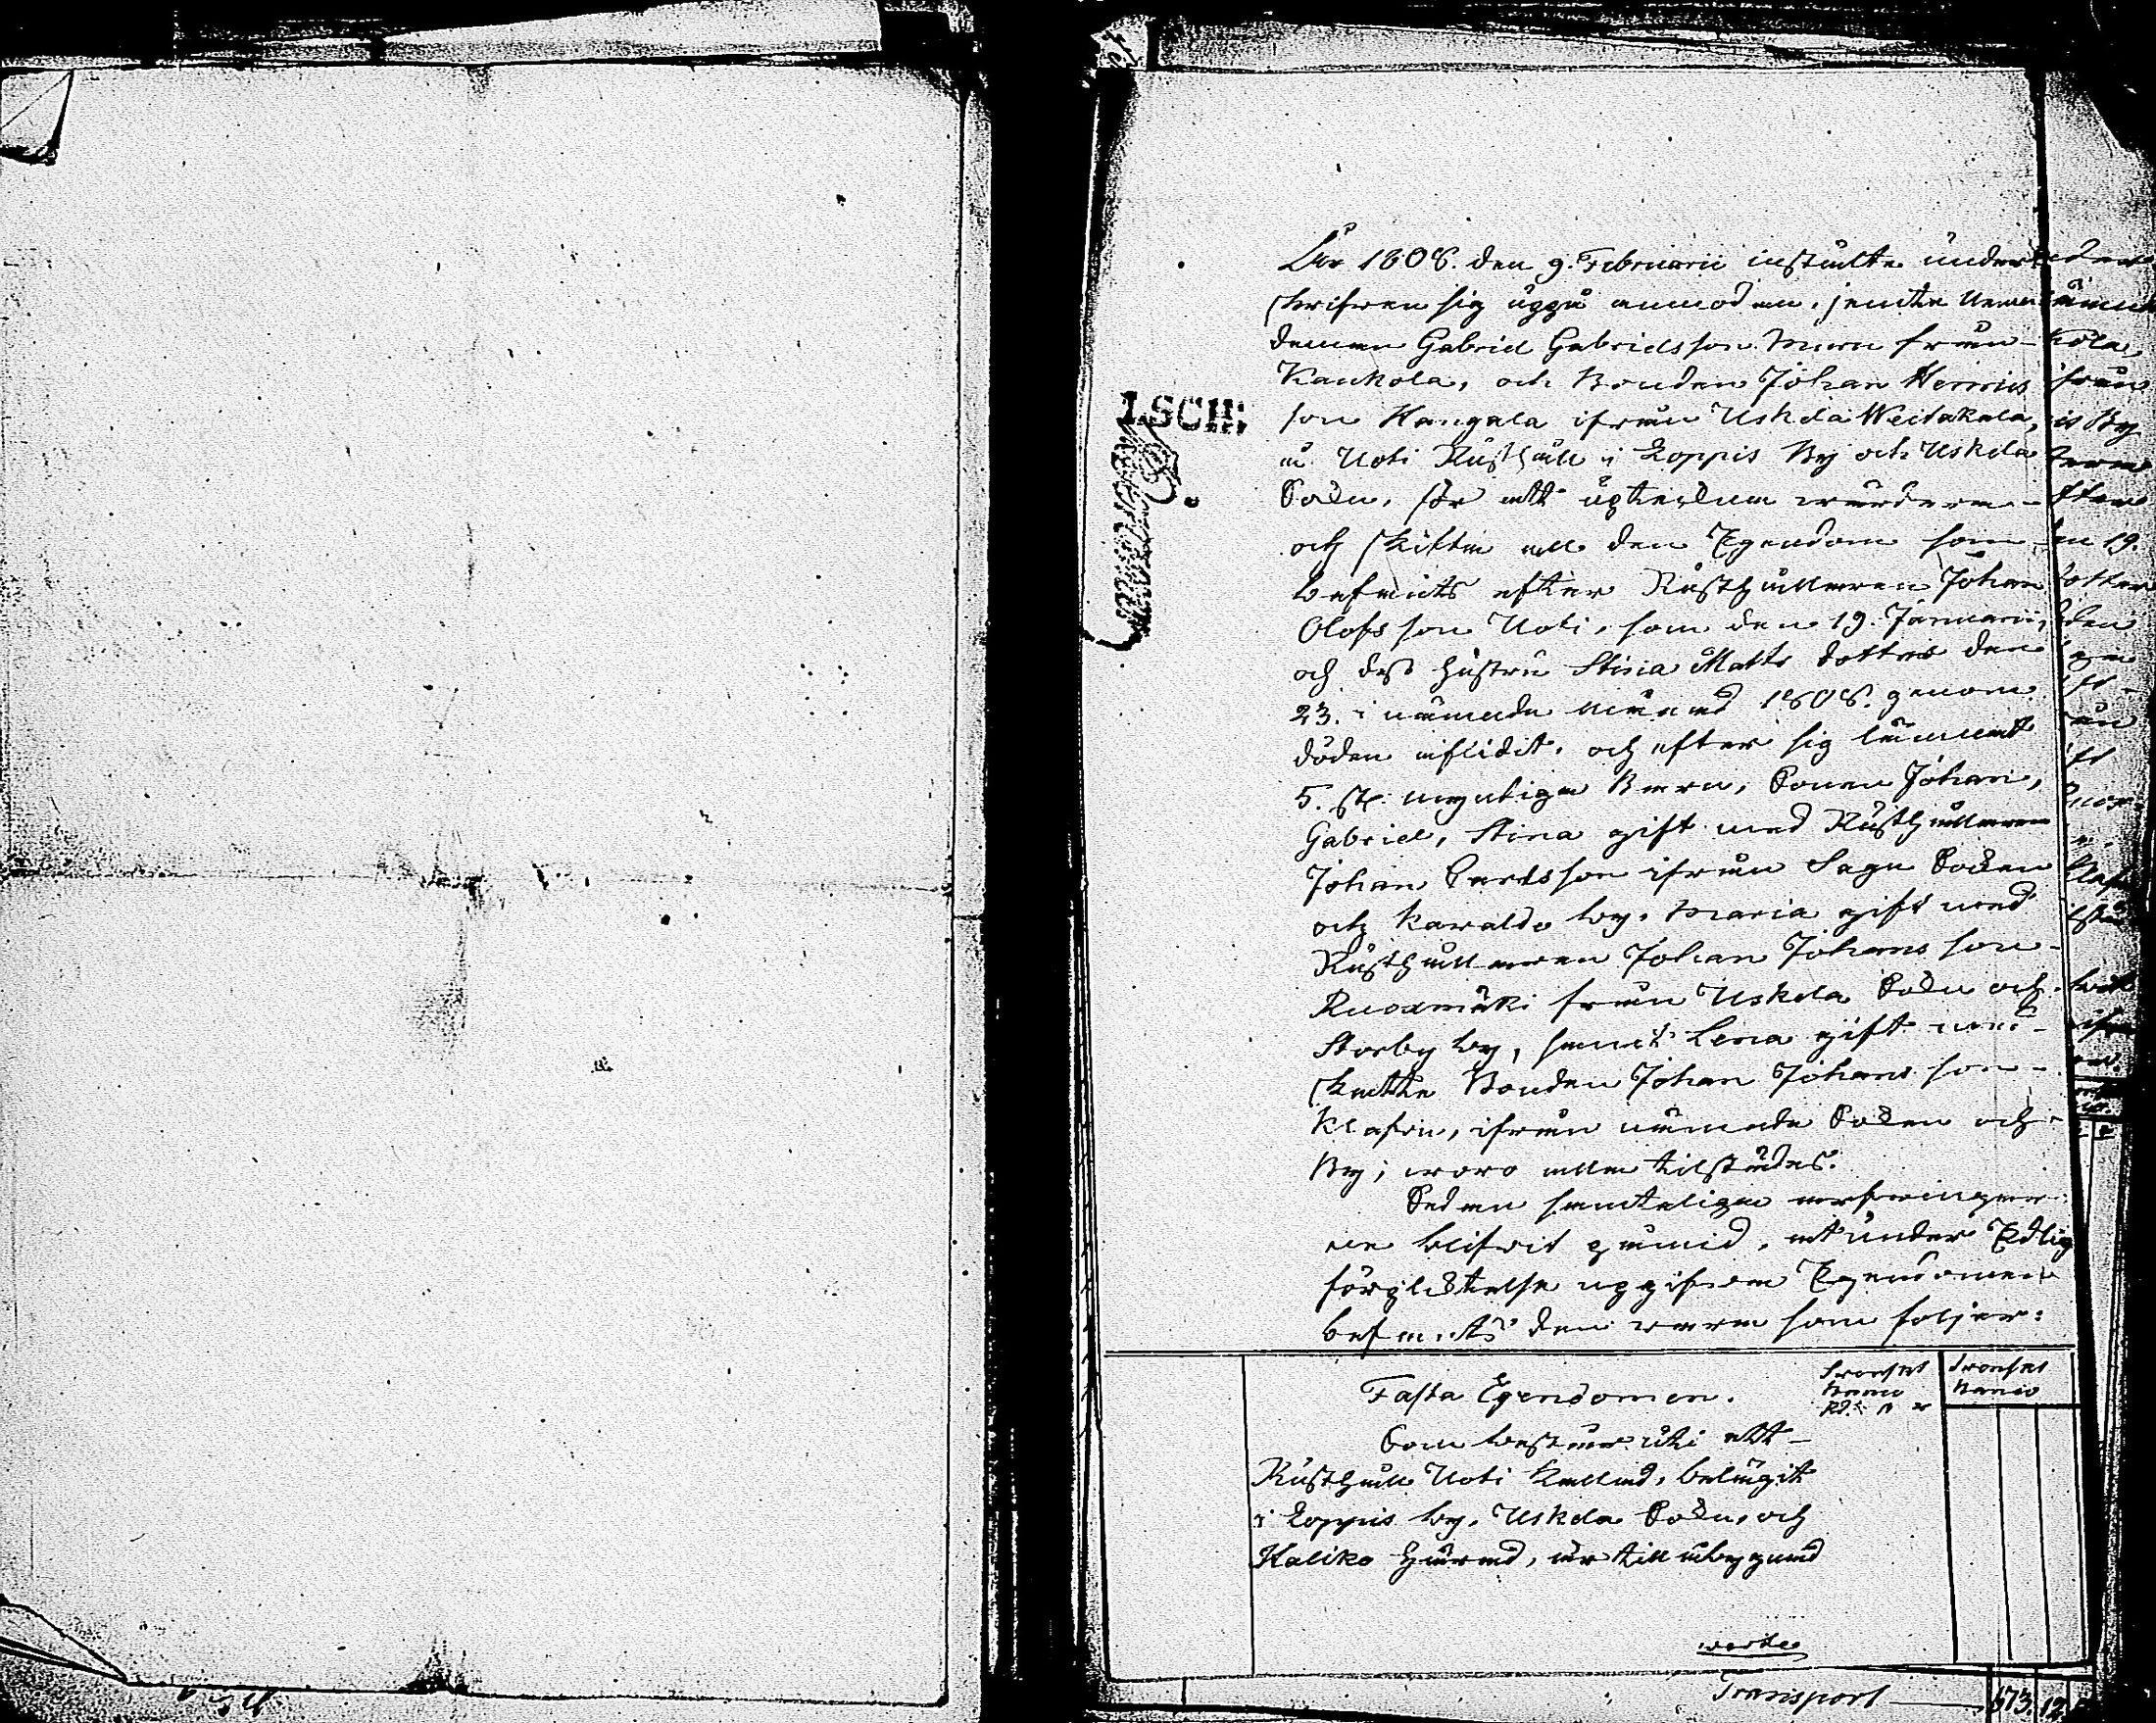 LSCH:
År 1808. den 9. Februarii instälte under
skrifven sig uppå anmodan, jemte Nemn
deman Gabriel Gabrielsson Murn från
Kaukola, och Bonden Johan Henrics
son Hangala ifrån Uskela Weitakala,
å Uoti Rusthåll i Loppis By och Uskela
Sokn, för att upteckna wärdera
och skifta all den Egendom som
befants efter Rusthållaren Johan
Olofs son Uoti, som den 19. Januarii,
och dess hustru Stina Matts dotter den
23. i nämnde månad 1808. genom
döden aflidit, och efter sig lämnat
5. st. myndiga Barn, Sonen Johan,
Gabriel, Stina gift med Rusthållaren
Johan son ifrån Sagu Soken
och Karaldo by, Maria gift med
Rusthållaren Johan Johans son
Ruoxmäki från Uskela Sokn och
Storby by, samt Lena gift med
Skatte Bonden Johan Johans son
Klafvu, ifrån nämnde Soken och
By; woro alla tilstädes.
Sedan samtelige arfwingar
ne blifvit påmind, at under Edlig
förpliktelse uppgifva Egendomen
befants den wara som följer:
Fasta Egendomen.
Svenskt
Banco
Rd. s r
Svenskt
Banco
Som består uti ett
Rusthåll Uoti kallad, belägit
i Loppis by, Uskela Sokn, och
Haliko härad, är till åbyggnad
werte
Transport 573. 12.